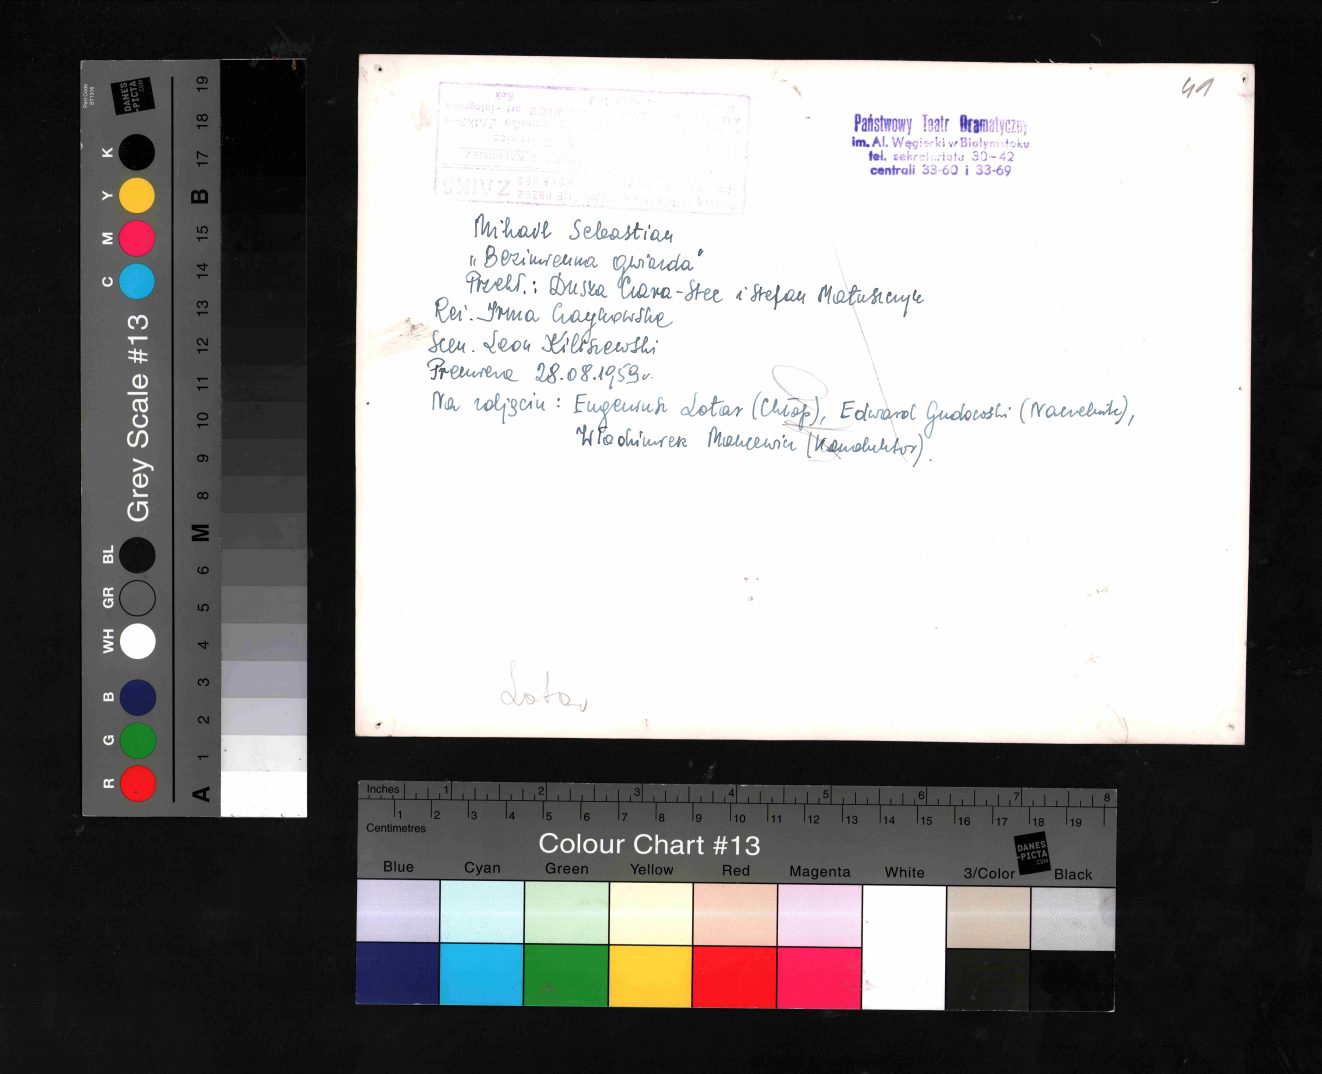 41
Państwowy Teatr Dramatyczny
im. Al. Węgierki w Białymstoku
tel. sekretariatu 30-42
centrali 33-60 i 33-69
ZAIKS
Mihail Sebastian
„Bezimienna gwiazda"
Przekł.: Duszka Czara-Stec i Stefan Matuszczyk
Reż. Irma Czaykowska
Scen. Leon Kiliszewski
Premiera 28.08.1959r.
Na zdjęciu: Eugeniusz Lotar (Chłop), Edward Gudowski (Naczelnik),
Włodzimierz Mancewicz (Konduktor).
Lotar
Part Code
ST1316
DANES
-PICTA
.COM
Grey Scale #13
K Y M C
BL GR WH B G R
A 1 2 3 4 5 6 M 8 9 10 11 12 13 14 15 B 17 18 19
Inches 1 2 3 4 5 6 7 8
Centimetres 1 2 3 4 5 6 7 8 9 10 11 12 13 14 15 16 17 18 19
Colour Chart #13
DANES
-PICTA
.COM
Blue Cyan Green Yellow Red Magenta White 3/Color Black